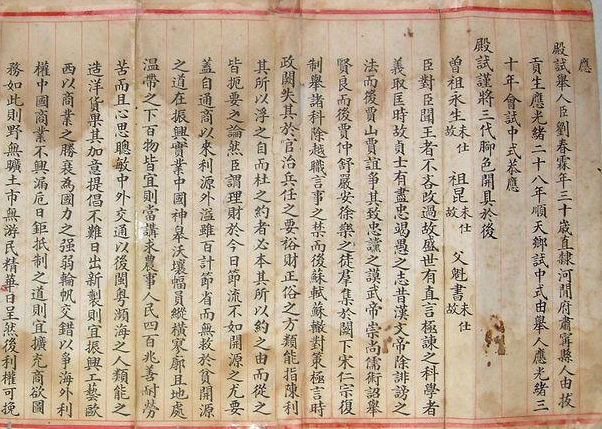 應
殿試舉人臣劉春霖年三十歲直隸河間府肅寧縣人由拔
貢生應光緒二十八年順天鄉試中式由舉人應光緒三
十年會試中式恭應
殿試謹將三代腳色開具於後
曾祖永生未仕故 祖昆未仕故 父魁書未仕故
臣對臣聞王者不吝改過故盛世有直言極諫之科學者
義取匡時故貞士有盡忠竭愚之志昔漢文帝除誹謗之
法而後賈山賈誼爭其致忠讜之謨武帝崇尚儒術詔舉
賢良而後賈仲舒嚴安徐樂之徒羣集於闕下宋仁宗復
制舉諸科除越職言事之禁而後蘇軾蘇轍對策極言時
政闕失其於官治兵任之要裕財正俗之方類能指陳利
其所以浮之自而杜之約者必本其所以約之由而從之
皆扼要之論然臣謂理財於今日節流不如開源之尤要
蓋自通商以來利源外溢雖百計節省而無救於貧開源
之道在振興實業中國神皋沃壤幅員縱橫寥廓且地處
溫帶之下百物皆宜則當講求農事人民四百兆善耐勞
苦而且心思聰敏中外交通以後閩粵瀕海之人類能之
造洋貨果其加意提倡不難日出新製則宜振興工藝歐
西以商業之勝衰為國力之强弱輪帆交錯以爭海外利
權中國商業不興漏巵日鉅抵制之道則宜擴充商欲圖
務如此則野無曠土市無游民精華日呈然後利權可挽